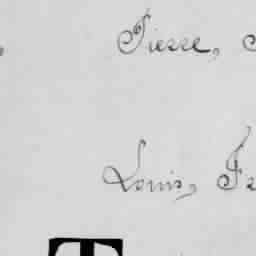 Pierre,
Louis, Fr
T